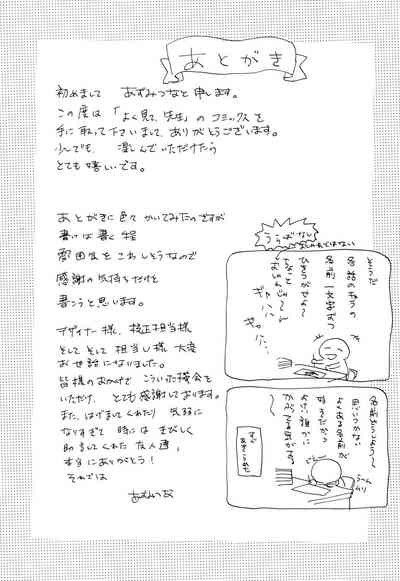 あとがき
初めまして あずみつなと申します。
この度は「よく見て、先生」のコミックスを
手に取って下さいまして、ありがとうございます。
少しでも、楽しんでいただけたら
とても嬉しいです。
あとがきに色々かいてみたのですが
書けば書く程
雰囲気をこわしそうなので
感謝の気持ちだけを
書こうと思います。
デザイナー様、校正担当様
そして そして 担当し様 大変
お世話になりました。
皆様のおかげで こういった機会を
いただけ、とても感謝しております。
また、はげましてくれたり 気弱に
なりすぎて 時には きびしく
助言してくれた 友人達、
本当にありがとう!
それでは
あずみつな
各話のキャラの
名前一文字ずつ
ひきつがせよ〜
ギャハハ
ギャハ…
名前どうしよう〜
思いつかない
よくある名前が
好きだから
よけい誰かに
かぶってる気がする。
〜
すぐ
あきらめた
うーん
ムリ